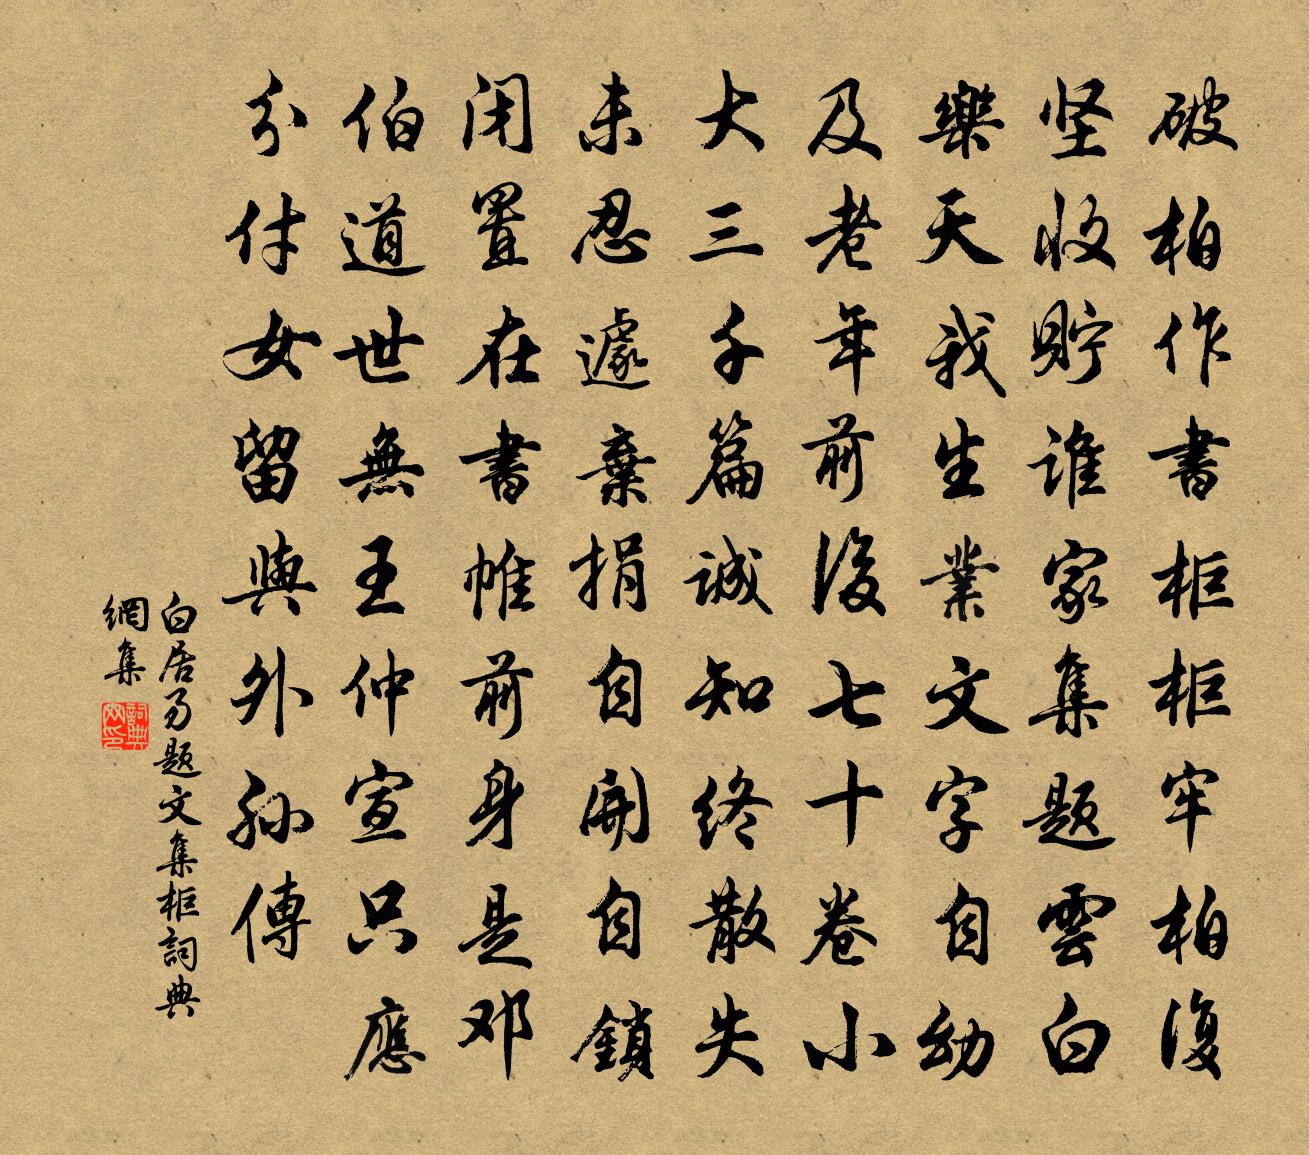 破柏作書柜柜牢柏復
坚收貯誰家集题雲白
樂天我生業文字自幼
及老年前後七十卷小
大三千篇誠知終散失
未忍遽棄捐自開自鎖
闭置在書帷前身是邓
伯道世無王仲宣只應
分付女留與外孫傳
白居易题文集柜詞典
網集
詞典網印